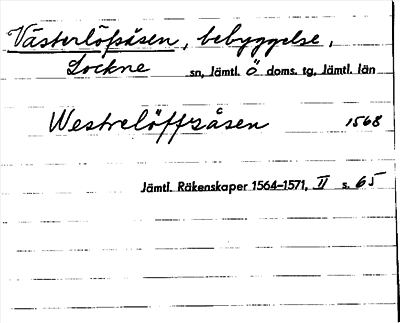 Västerlöfsåsen, bebyggelse,
Lockne sn, Jämtl. Ö doms. tg, Jämtl. län
Westrelöffzåsen 1568
Jämtl. Räkenskaper 1564–1571, II s. 65